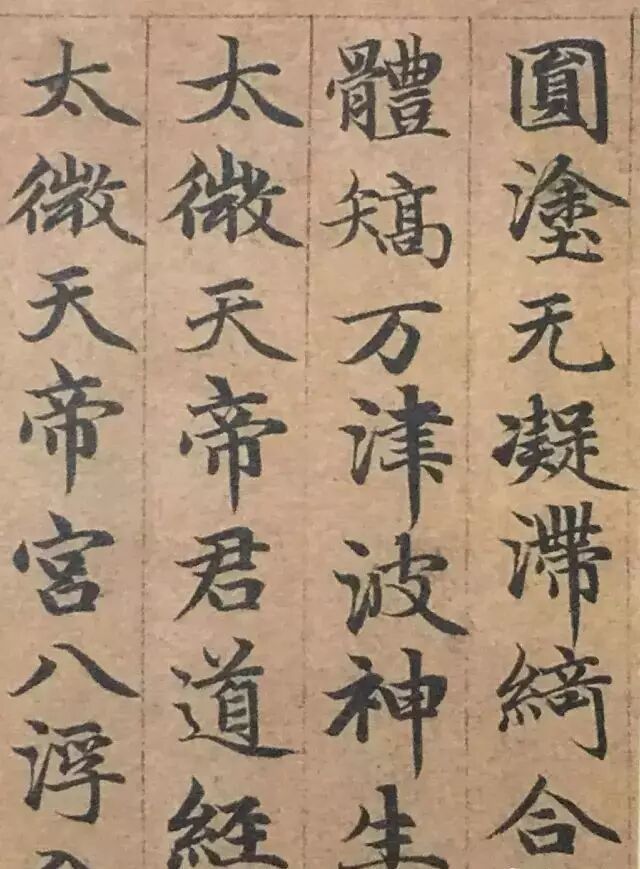 圓塗无凝滯綺合
體矯万津波神生
太微天帝君道經
太微天帝宮八浮